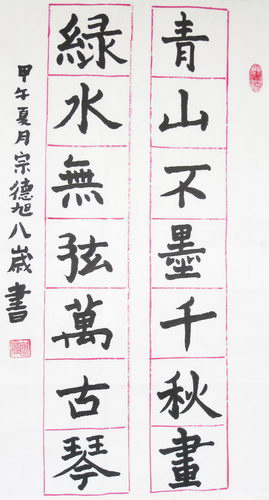 青山不墨千秋畫
綠水無弦萬古琴
甲午夏月宗德旭八歲書